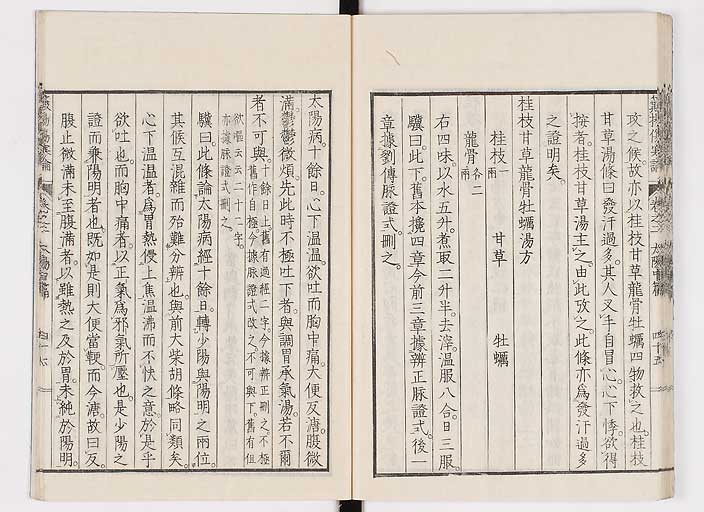 攻之候故亦以桂枝甘草龍骨牡蠣四物救之也桂枝
甘草湯條曰發汗過多其人叉手自冒心心下悸欲得
按者桂枝甘草湯主之由此攷之此條亦爲發汗過多
之證明矣
桂枝甘草龍骨牡蠣湯方
桂枝一兩 甘草 牡蠣
龍骨各二兩
右四味以水五升煮取二升半去滓溫服八合日三服
驥曰此下舊本攙四章今前三章據辨正脉證式後一
章據劉傳脉證式刪之
太陽病十餘日心下溫溫欲吐而胸中痛大便反溏腹微
滿鬱鬱微煩先此時不極吐下者與調胃承氣湯若不爾
者不可與十餘日上舊有過經二字今據辨正刪之不極
舊作自極今據脉證式改之不可與下舊有但
欲嘔云云二十二字
亦據脉證式刪之
驥曰此條論太陽病經十餘日轉少陽與陽明之兩位
其候互混雜而殆難分辨也與前大柴胡條略同類矣
心下溫溫者爲胃熱侵上焦溫沸而不快之意於是乎
欲吐也而胸中痛者以正氣爲邪氣所壓也是少陽之
證而兼陽明者也既如是則大便當鞕而今溏故曰反
腹止微滿未至腹滿者以雖熱之及於胃未純於陽明